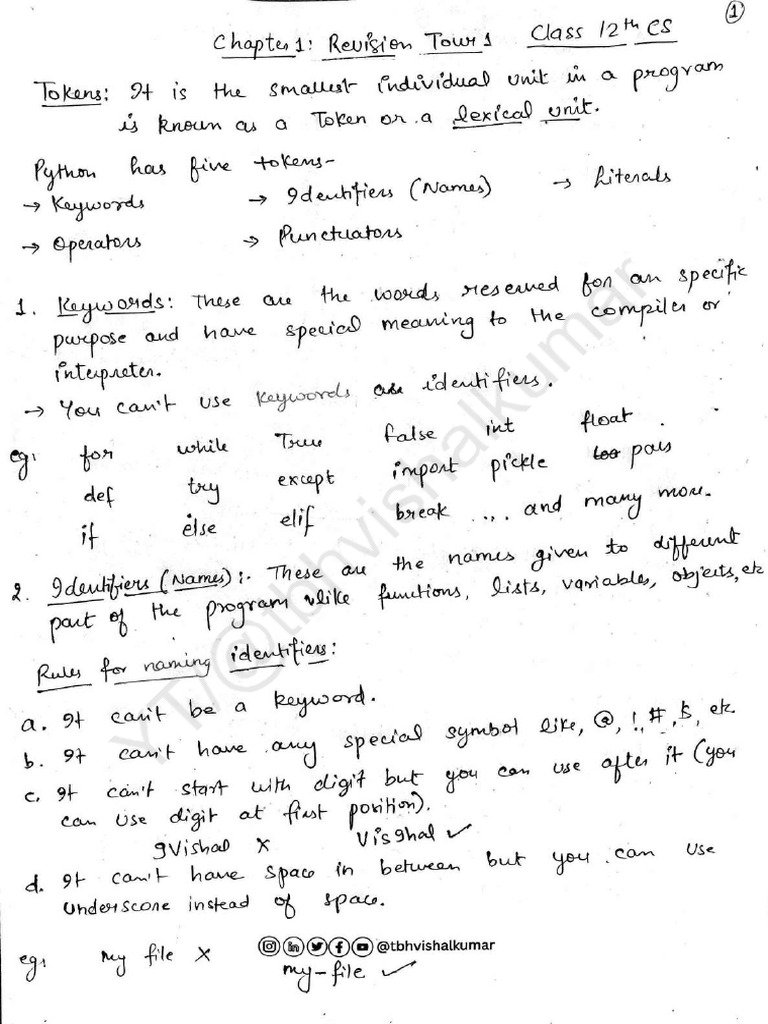 1
Chapter 1: Revision Tour 1 Class 12th CS
Tokens: It is the smallest individual unit in a program
is known as a Token or a lexical unit.
Python has five tokens-
→ Keywords → Identifiers (Names) → Literals
→ Operators → Punctuators
1. Keywords: These are the words reserved for an specific
purpose and have special meaning to the compiler or
interpreter.
→ You can't use keywords as identifiers.
eg: for while True false int float
def try except import pickle pass
if else elif break .... and many more.
2. Identifiers (Names):- These are the names given to different
part of the program like functions, lists, variables, objects, etc
Rules for naming identifiers:
a. It can't be a keyword.
b. It can't have any special symbol like, @, !, #, $, etc
c. It can't start with digit but you can use after it (you
can use digit at first position).
9Vishal x Vis9hal ✓
d. It can't have space in between but you can use
underscore instead of space.
eg: my file x my-file ✓
@tbhvishalkumar
YT/@tbhvishalkumar